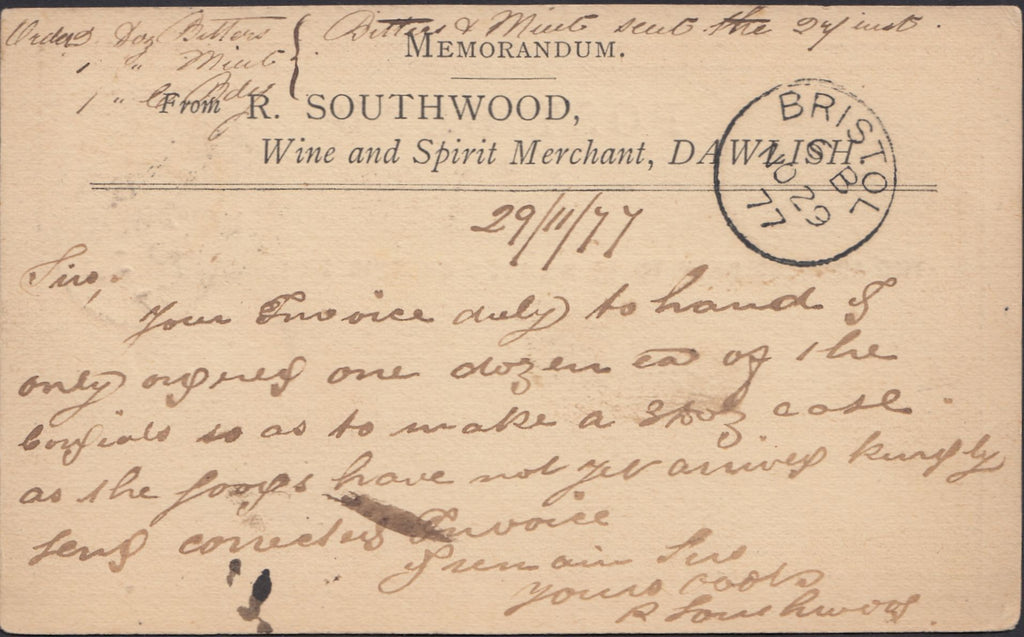 Order 2 Doz Bitters { Bitters & Mint sent the 27 inst
1 " Mint
1 "
MEMORANDUM.
From R. SOUTHWOOD,
Wine and Spirit Merchant, DAWLISH
BRISTOL
6 B
NO 29
77
29/11/77
Sirs,
Your Invoice duly to hand I
only ordered one dozen ea of the
Cordials so as to make a 3 Doz case
as the goods have not yet arrived kindly
send corrected Invoice
I remain Sirs
Yours
R Southwood